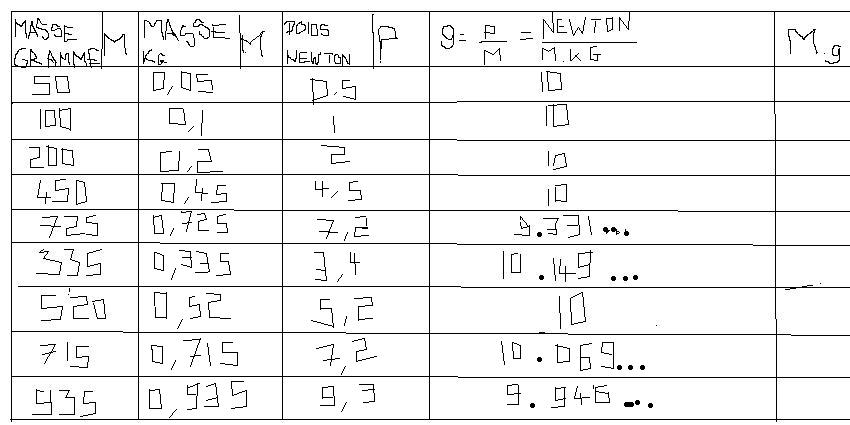 MASSE GRAMME M MASSE KG M POIDS NEWTON P g = P/M = NEWTON/M.KG M.g
50 0,05 0.5 10
100 0,1 1 10
200 0,2 2 10
450 0,45 4,5 10
725 0,725 7,2 9.331...
335 0,335 3,4 10.149...
520 0,52 5,2 10
715 0,715 7,2 10.069...
935 0,935 9,3 9.946...